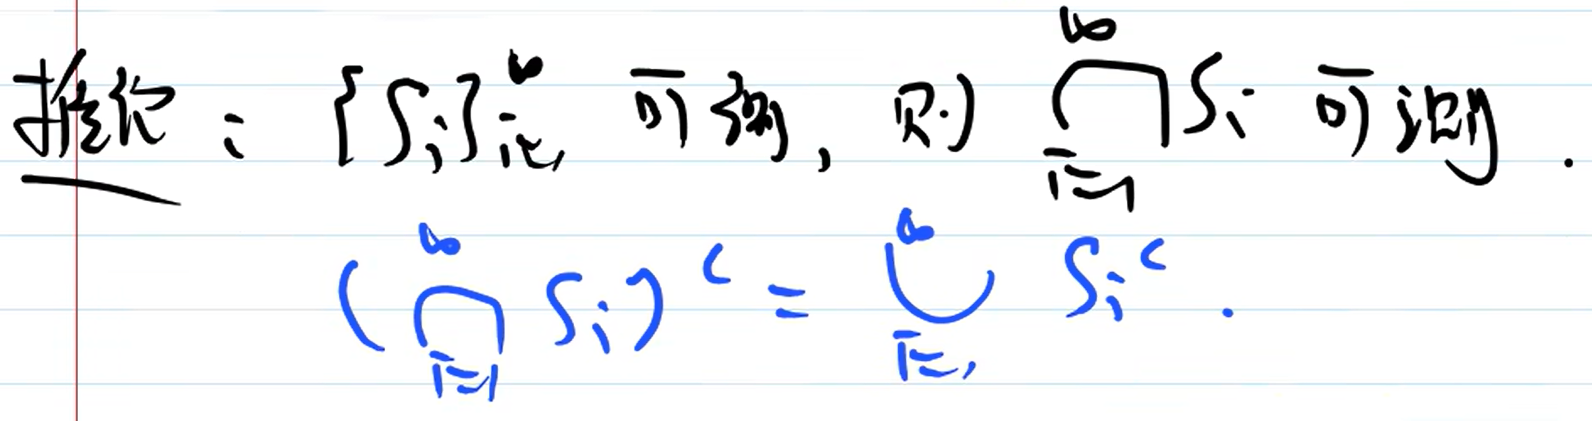 推论：{Sᵢ}ᵢ₌₁^∞ 可测，则 ⋂ᵢ₌₁^∞ Sᵢ 可测.
(⋂ᵢ₌₁^∞ Sᵢ)ᶜ = ⋃ᵢ₌₁^∞ Sᵢᶜ.